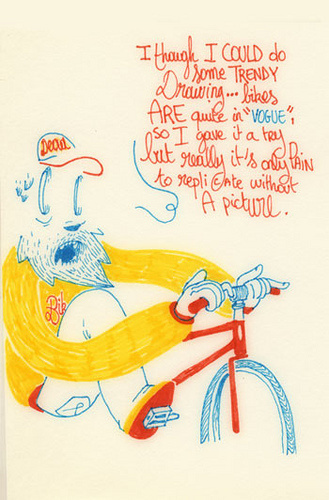 I though I COULD do
some TRENDY
Drawing... bikes
ARE quite in "VOGUE",
so I gave it a try
but really it's only PAIN
to replicate without
A picture.
Dead
Bik